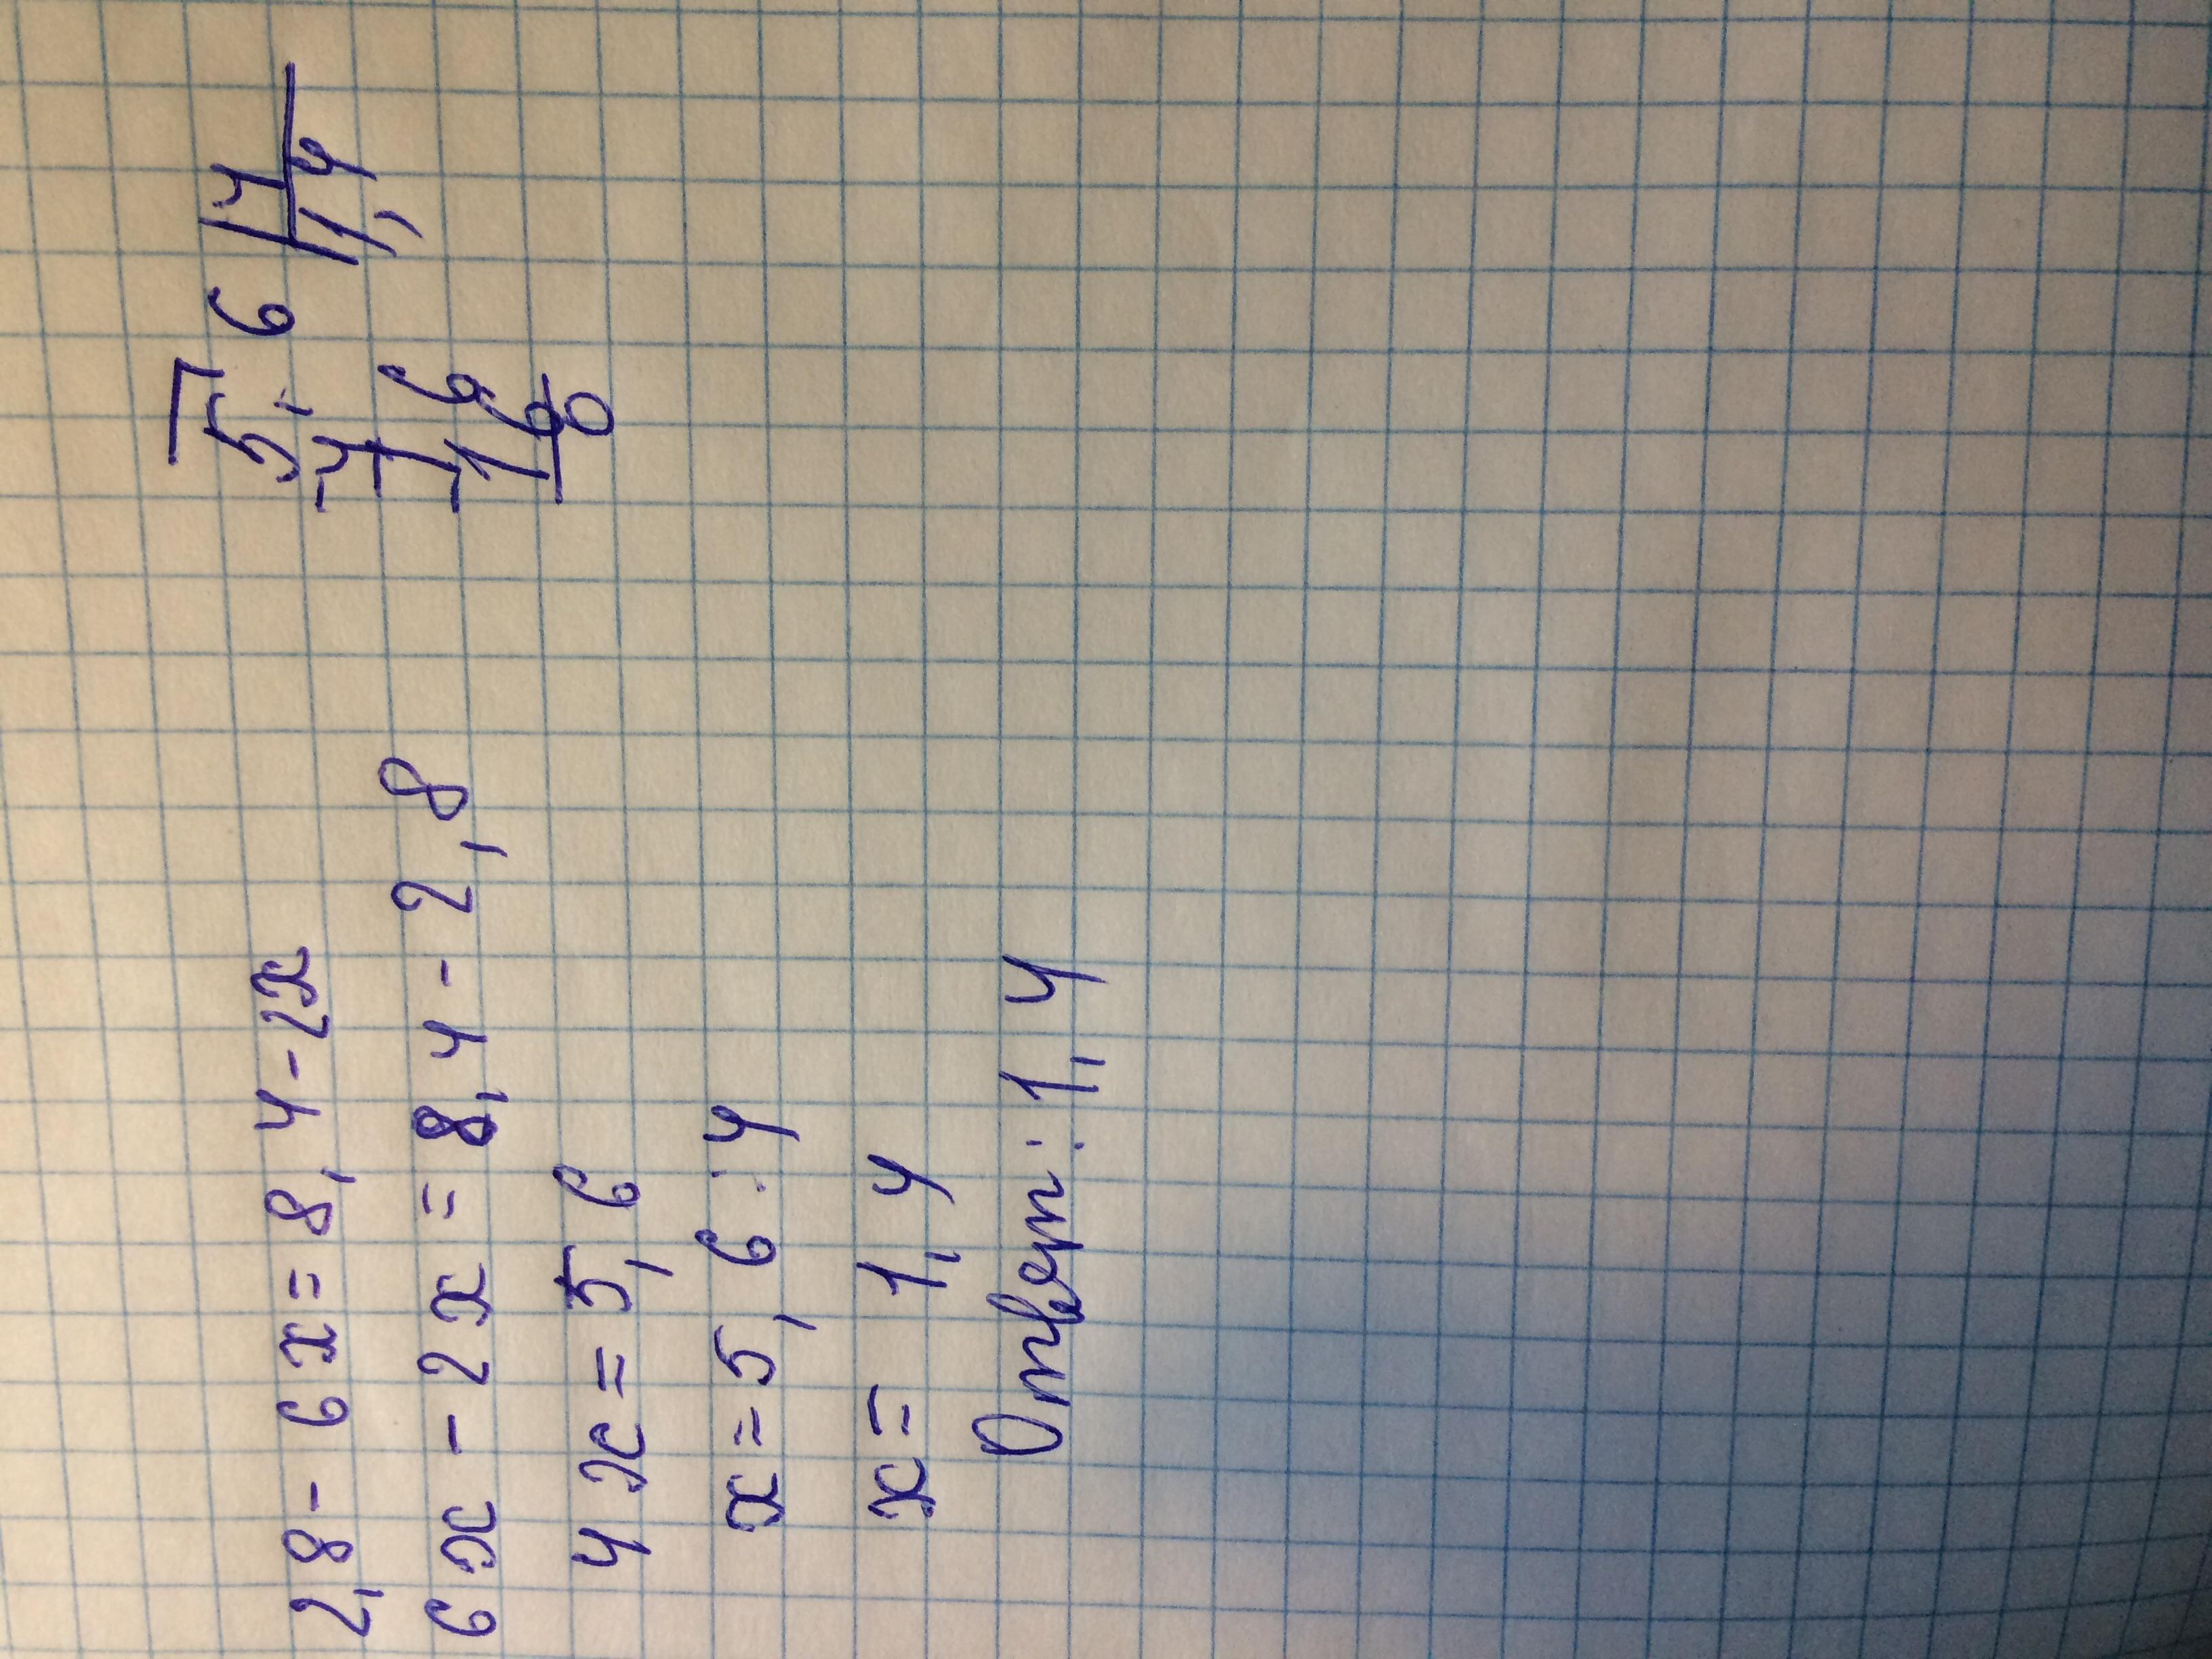 2,8 - 6x = 8,4 - 2x
6x - 2x = 8,4 - 2,8
4x = 5,6
x = 5,6 : 4
x = 1,4
Ответ: 1,4
5,6 | 4
- 4 | 1,4
16
- 16
0